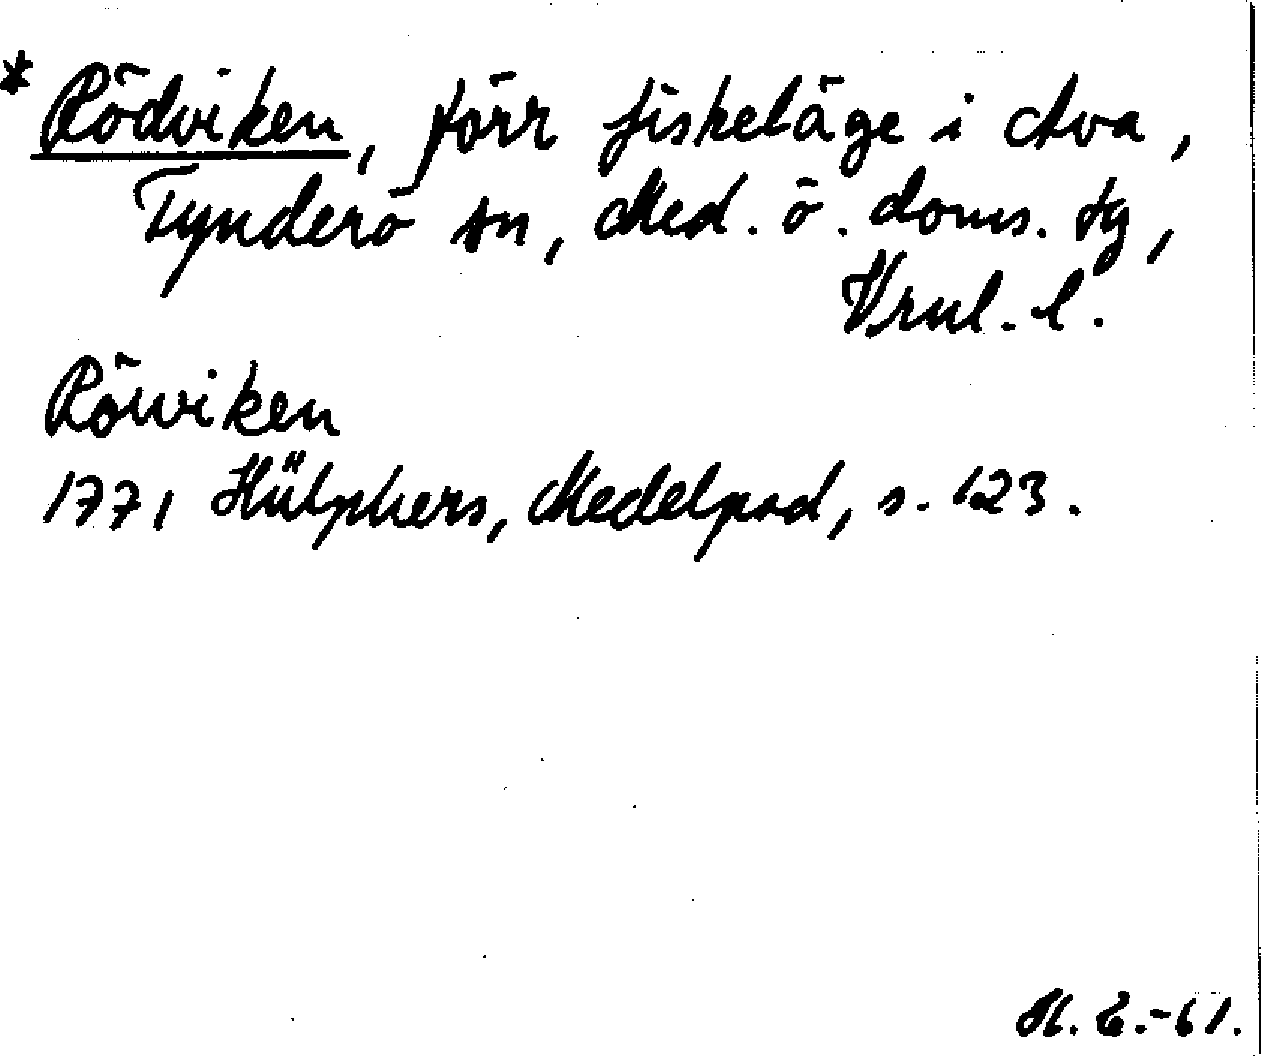 * Rödviken, förr fiskeläge i Ava,
Tynderö sn, Med. ö. doms. tg,
Vrnl. l.
Röwiken
1771 Hülphers, Medelpad, s. 123.
H. E.-61.